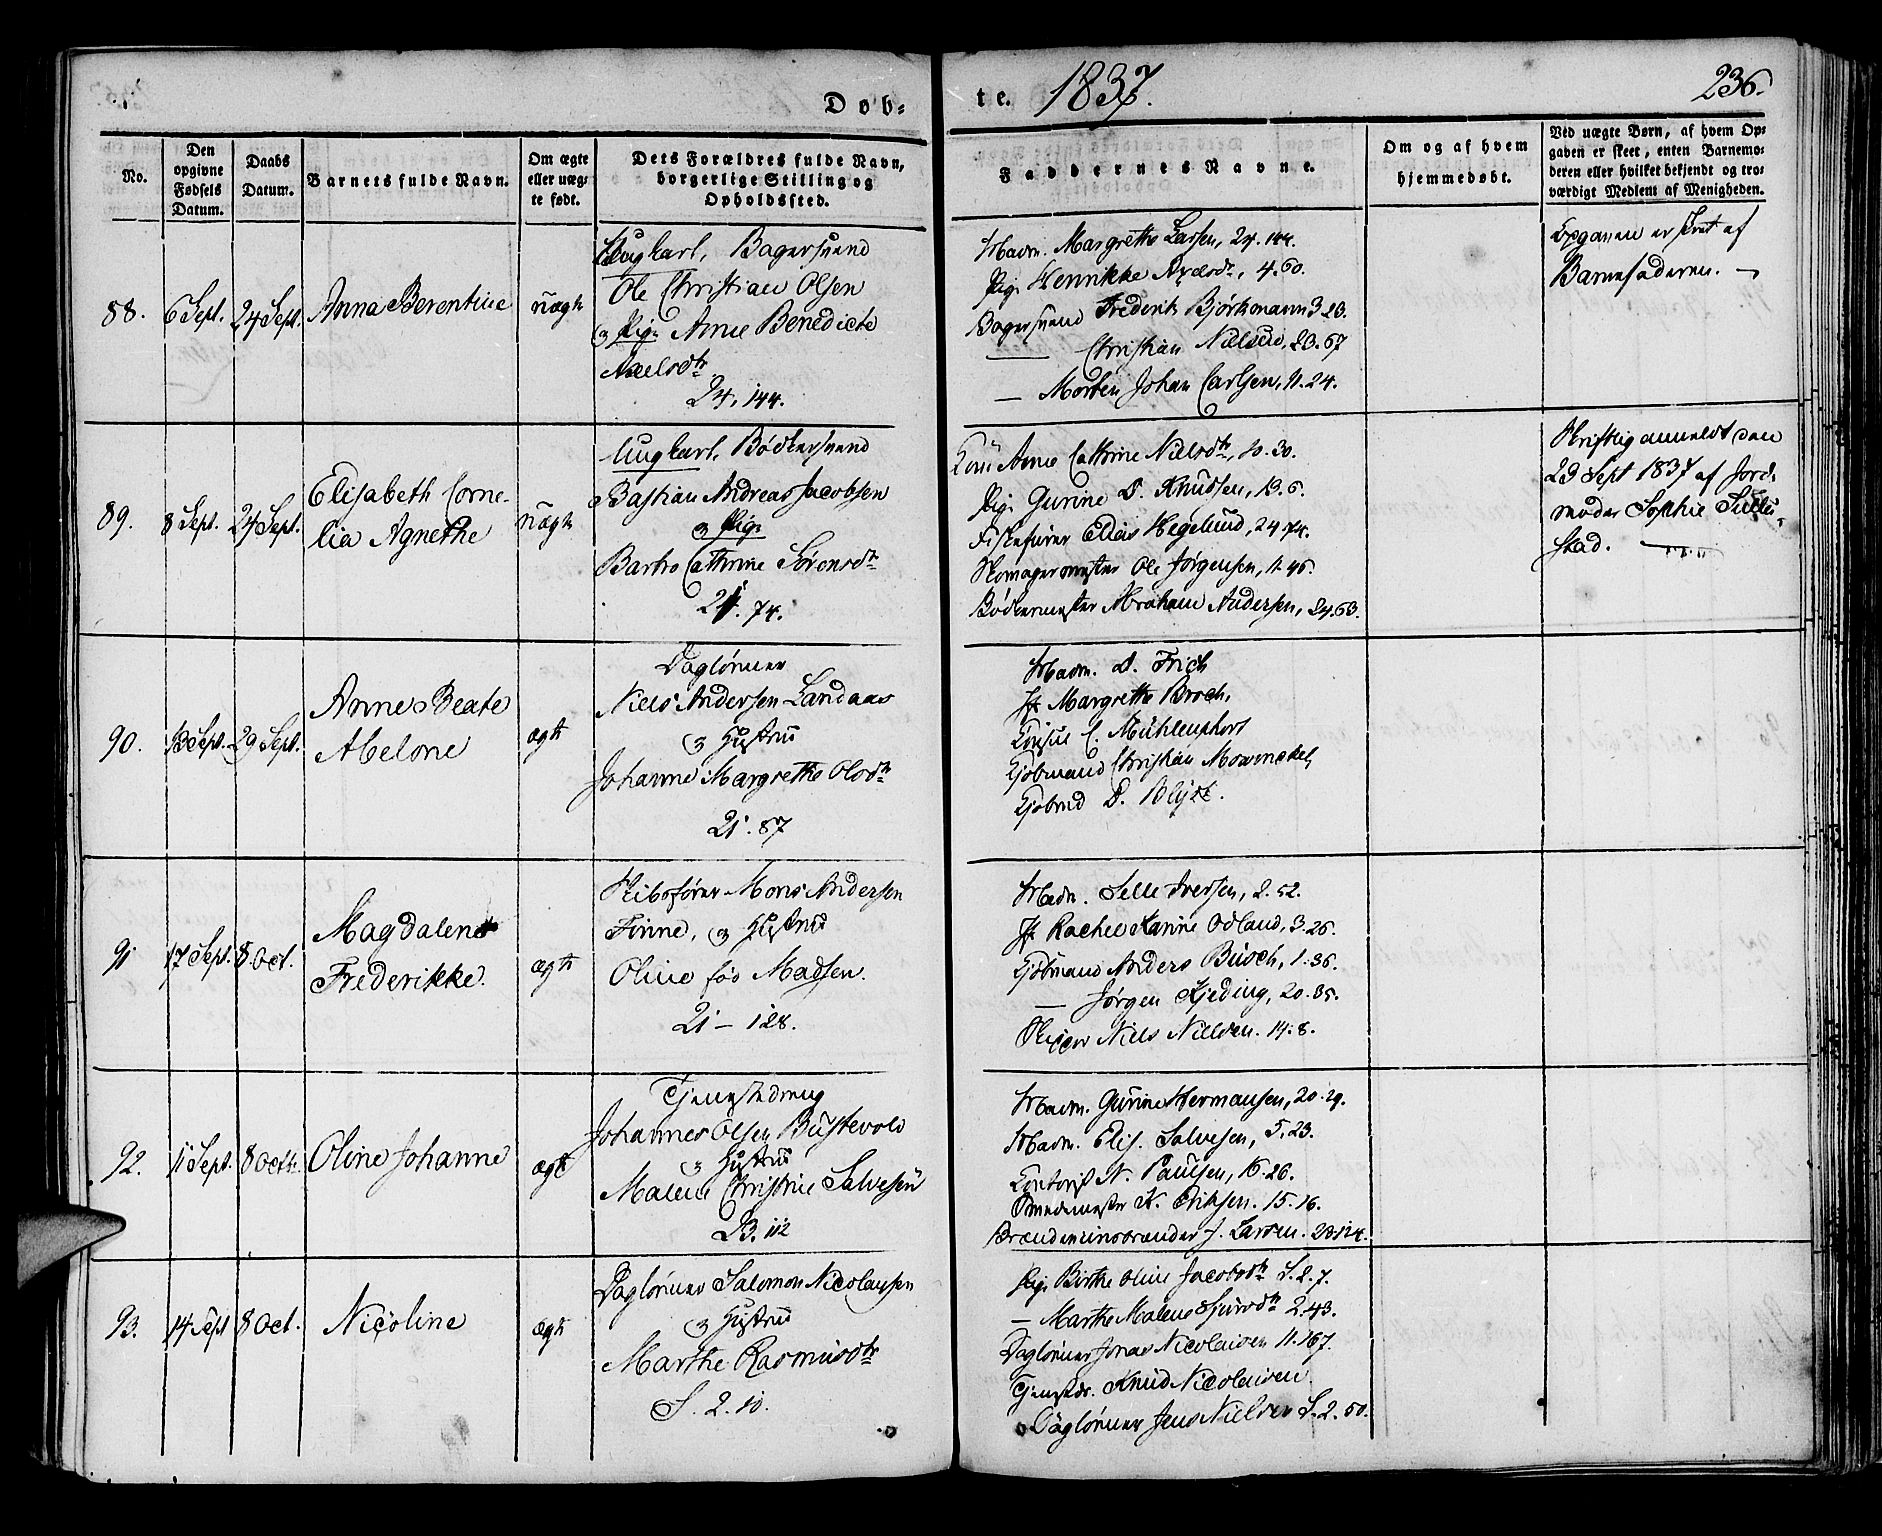 Døb-
te. 1837.
236.
No.
Den opgivne Fødsels Datum.
Daabs Datum.
Barnets fulde Navn.
Om ægte eller uæg- te født.
Dets Forældres fulde Navn, borgerlige Stilling og Opholdssted.
Faddernes Navne.
Om og af hvem hjemmedøbt.
Ved uægte Børn, af hvem Op- gaven er skeet, enten Barnemo- deren eller hvilket bekjendt og tro- værdigt Medlem af Menigheden.
88. 6 Sept. 24 Sept. Anna Berentine uægte
Ungkarl, Bagersvend
Ole Christian Olsen
og Pige Anne Benedicte
Axelsdtr
24, 144.
Madm. Margrethe Larsen, 24. 144.
Pige Henrikke Axelsdtr, 4. 60.
Bagersvend Frederik Bjørkmann 3. 23.
— Christian Nielsen, 23. 67
— Morten Johan Carlsen, 11. 24.
Opgaven er skeet af
Barnefaderen. —
89. 8 Sept. 24 Sept. Elisabeth Corne-
lia Agnethe uægte
Ungkarl, Bødkersvend
Bastian Andreas Jacobsen
og Pige
Barbro Cathrine Sørensdtr
24. 74.
Kone Anne Cathrine Nielsdtr, 10. 30.
Pige Gurine D. Knudsen, 13. 6.
Elias Hegelund, 24. 74.
Ole Jørgensen, 11. 46.
Bødkermester Abraham Andersen, 24. 63.
Skriftlig anmeldt den
23 Sept 1837 af Jord-
moder Sophie
stad.
90. 13 Sept. 29 Sept. Anne Beate
Abelone ægte
Daglønner
Niels Andersen Landaas
og Hustrue
Johanne Margrethe Olsdtr
21. 87
Madm. D. Frich
Jf Margrethe Broch,
Consul C. Mühlenphort
Kjøbmand Christian Mowinckel,
Kjøbmd D. Blÿtt.
91 17 Sept. 8 Oct. Magdalene
Frederikke. ægte
Skibsfører Mons Andersen
Finne, og Hustrue
Oline fød Madsen.
21 — 128.
Madm. Selle Iversen, 2. 52.
Jf Rachel Karine Odland, 3. 26.
Kjøbmand Anders Busch, 1. 36.
— Jørgen Kjeding, 20. 35.
Skipper Niels Nielsen. 14. 8.
92. 11 Sept. 8 Octb. Oline Johanne ægte
Tjenestedreng
Johannes Olsen Bustevold
og Hustrue
Malene Christine Salvesen
23. 112
Madm. Gurine Hermansen, 20. 29.
Madm. Elis. Salvesen, 5. 23.
Contorist N. Paulsen, 16. 26.
Smedemester K. Eriksen. 15. 16.
J. Larsen. 23. 124.
93. 14 Sept 8 Oct. Nicoline ægte
Daglønner Salomon Nicolaysen
og Hustrue
Marthe Rasmusdtr
S. 2. 10.
Pige Birthe Oline Jacobsdtr S. 2. 7.
— Marthe Malene Sjursdtr 2. 43.
Dagløner Jonas Nicolaisen 11. 167.
Tjenestdr. Knud Nicolaisen
Daglønner Jens Nielsen S. 2. 50.